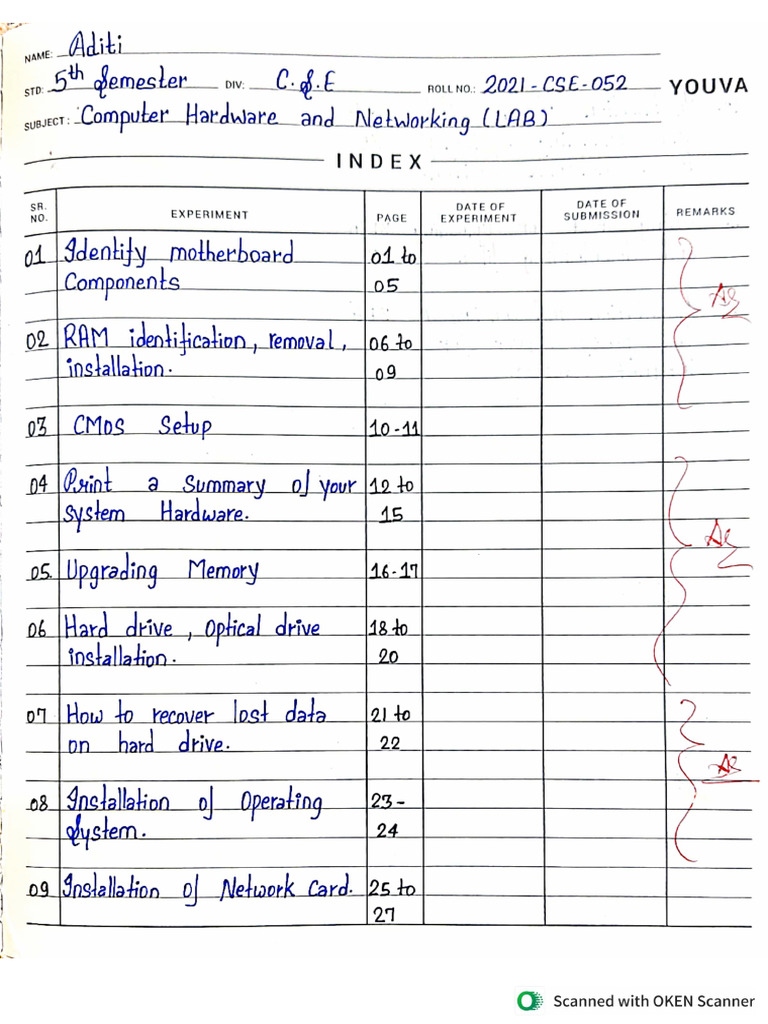 NAME: Aditi
STD: 5th Semester DIV: C.S.E ROLL NO.: 2021-CSE-052 YOUVA
SUBJECT: Computer Hardware and Networking (LAB)
INDEX
SR. NO. EXPERIMENT PAGE DATE OF EXPERIMENT DATE OF SUBMISSION REMARKS
01 Identify motherboard 01 to
Components 05
02 RAM identification, removal, 06 to
installation. 09
03 CMOS Setup 10-11
04 Print a Summary of your 12 to
System Hardware. 15
05. Upgrading Memory 16-17
06 Hard drive, Optical drive 18 to
installation. 20
07 How to recover lost data 21 to
on hard drive. 22
08 Installation of Operating 23-
System. 24
09 Installation of Network Card. 25 to
27
Scanned with OKEN Scanner